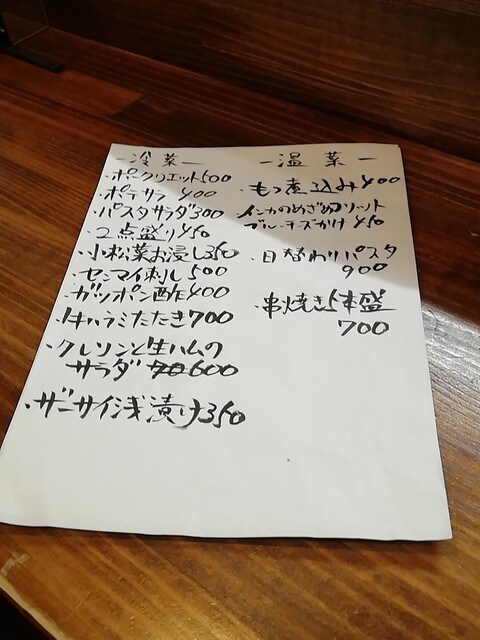 －冷菜－
・ポークリエット500
・ポテサラ 400
・パスタサラダ300
・2点盛り450
・小松菜お浸し350
・センマイ刺し500
・ガツポン酢400
・ハラミたたき700
・クレソンと生ハムの
サラダ 600
・ザーサイ浅漬け350
－温菜－
・もつ煮込み400
・インカのめざめフリット
ブルーチーズがけ 450
・日替わりパスタ
900
・串焼き5本盛
700